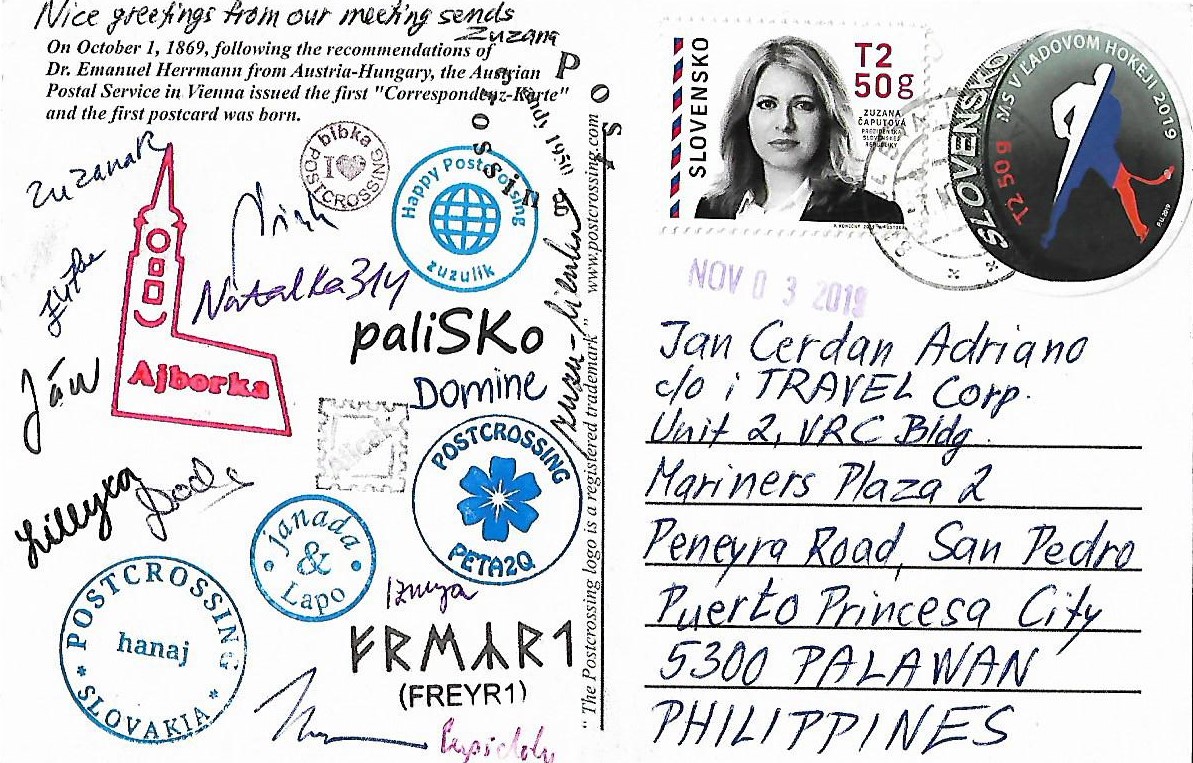 Nice greetings from our meeting sends
Zuzana
On October 1, 1869, following the recommendations of
Dr. Emanuel Herrmann from Austria-Hungary, the Austrian
Postal Service in Vienna issued the first "Correspondenz-Karte"
and the first postcard was born.
zuzanak
bibka
I
POSTCROSSING
Happy Postcrossing
zuzulik
Natalka314
Ajborka
paliSKo
Domine
Ján
POSTCROSSING
PETA2Q
Lillyka
janada
&
Lapo
POSTCROSSING
hanaj
* SLOVAKIA *
FREYR1
(FREYR1)
" The Postcrossing logo is a registered trademark" www.postcrossing.com
SLOVENSKO
T2
50g
ZUZANA
ČAPUTOVÁ
PREZIDENTKA
SLOVENSKEJ
REPUBLIKY
SLOVENSKO
T2 50g
MS V ĽADOVOM HOKEJI 2019
NOV 0 3 2019
Jan Cerdan Adriano
c/o i TRAVEL Corp.
Unit 2, VRC Bldg.
Mariners Plaza 2
Peneyra Road, San Pedro
Puerto Princesa City
5300 PALAWAN
PHILIPPINES